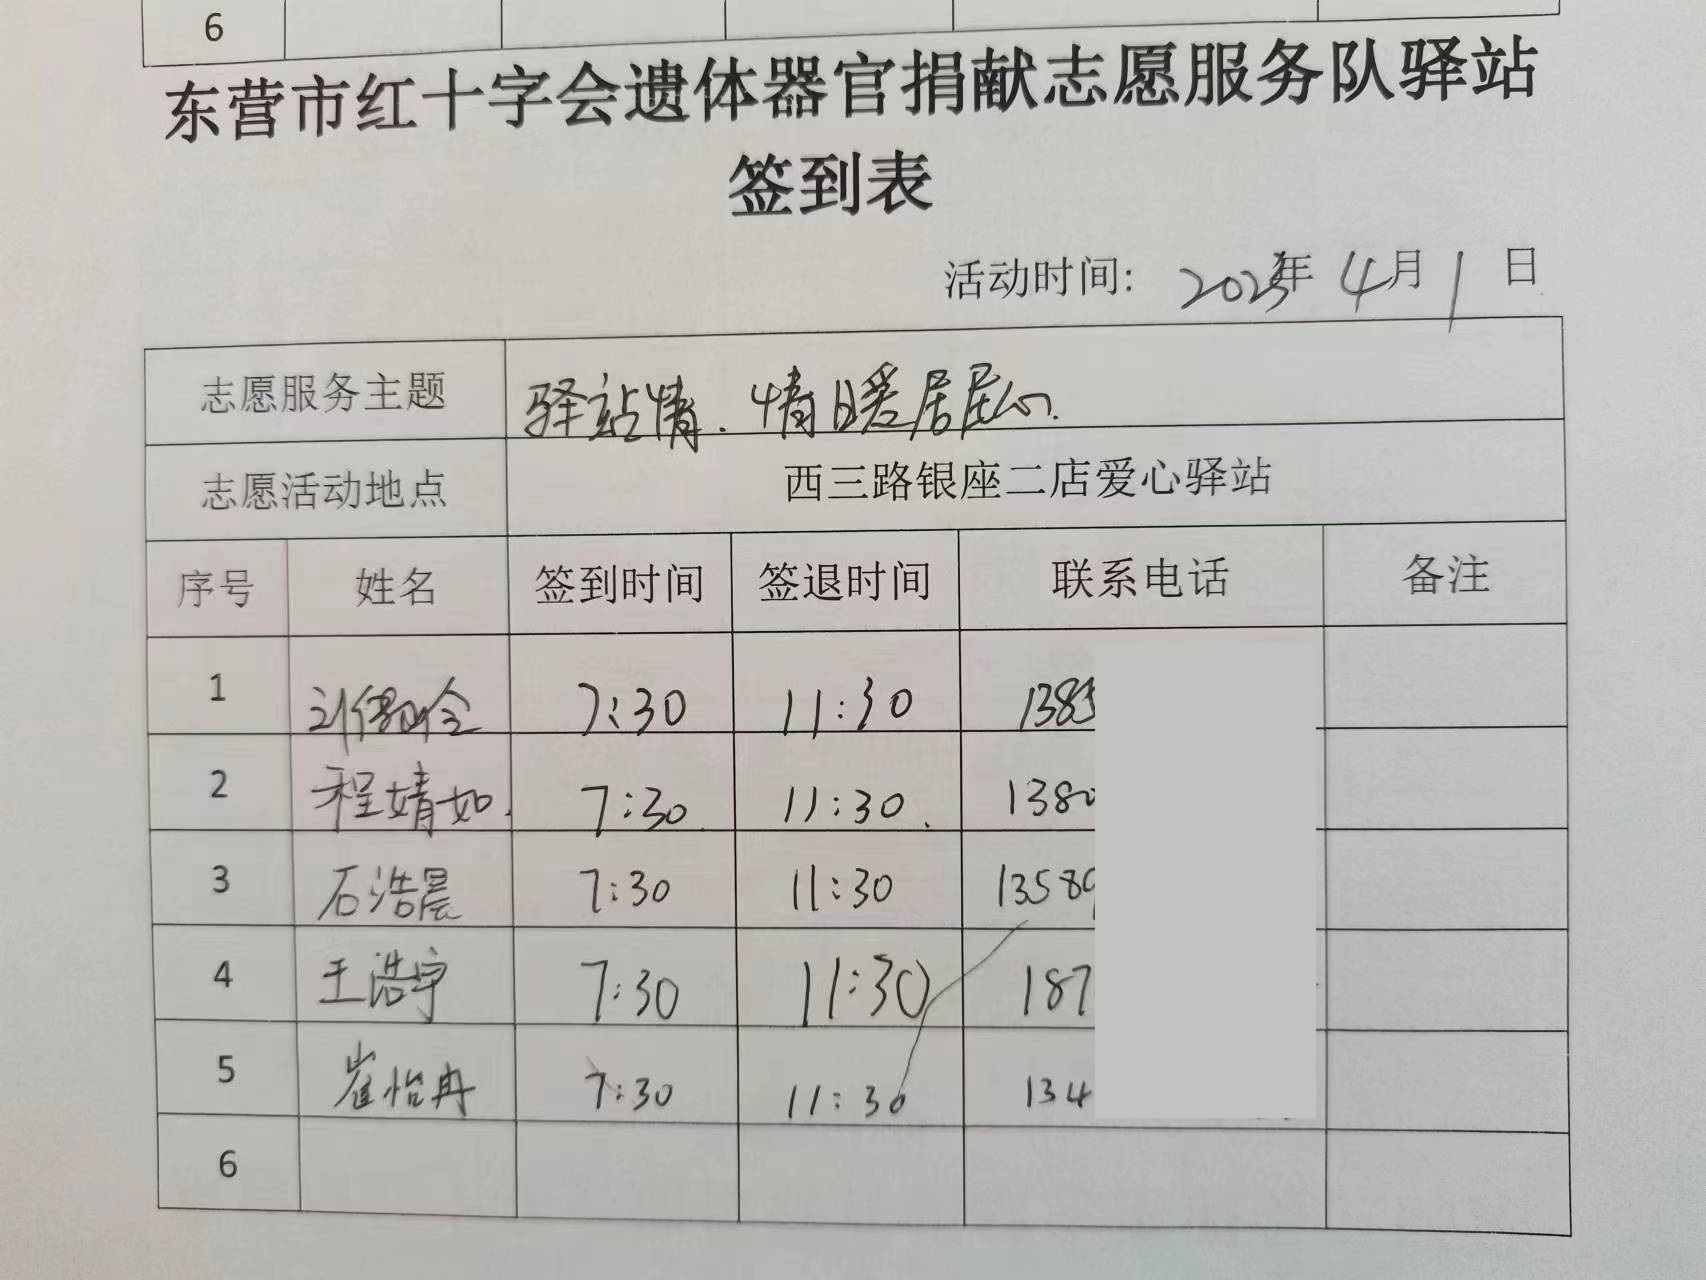 6
东营市红十字会遗体器官捐献志愿服务队驿站
签到表
活动时间: 2023年 4月 1 日
志愿服务主题 驿站情. 情暖居民心.
志愿活动地点 西三路银座二店爱心驿站
序号 姓名 签到时间 签退时间 联系电话 备注
1 7:30 11:30 1385
2 程婧如. 7:30. 11:30. 1380
3 石浩晨 7:30 11:30 13589
4 王浩宇 7:30 11:30 187
5 崔怡冉 7:30 11:30 134
6